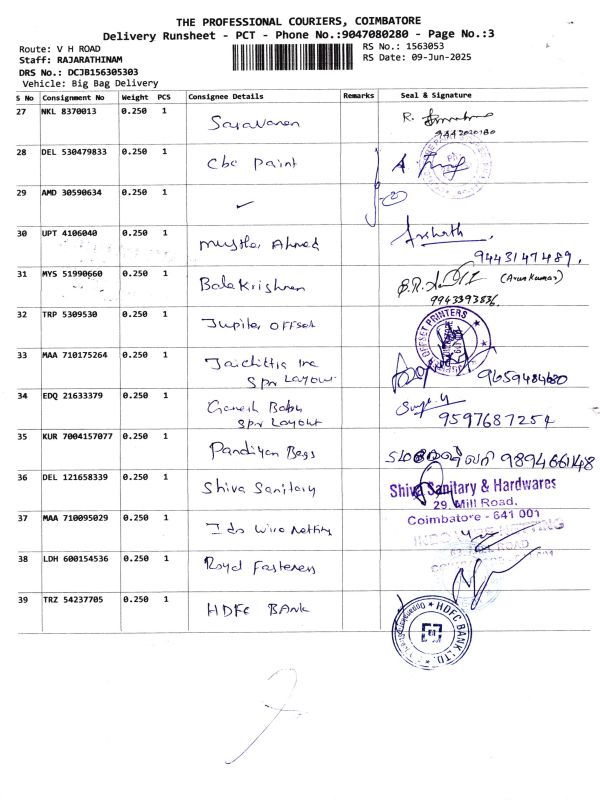 THE PROFESSIONAL COURIERS, COIMBATORE
Delivery Runsheet - PCT - Phone No.:9047080280 - Page No.:3
Route: V H ROAD
RS No.: 1563053
Staff: RAJARATHINAM
RS Date: 09-Jun-2025
DRS No.: DCJB156305303
Vehicle: Big Bag Delivery
S No Consignment No Weight PCS Consignee Details Remarks Seal & Signature
27 NKL 8370013 0.250 1 Saravanan R.
9442020180
28 DEL 530479833 0.250 1 Cbc Paint
29 AMD 30590634 0.250 1
30 UPT 4106040 0.250 1 Mustha Ahmed
9443147489,
31 MYS 51990660 0.250 1 Bala Krishnan (Arun Kumar)
9943393836
32 TRP 5309530 0.250 1 Jupiter Offset OFFSET PRINTERS
33 MAA 710175264 0.250 1 Inc 9659484680
Spr Layout
34 EDQ 21633379 0.250 1 Ganesh Babu
Spr Layout 9597687254
35 KUR 7004157077 0.250 1 Pandiyan Bags 9894661148
36 DEL 121658339 0.250 1 Shiva Sanitary Shiva Sanitary & Hardwares
29, Mill Road,
Coimbatore - 641 001
37 MAA 710095029 0.250 1 Indo Wire Netting NETTING
ROAD
38 LDH 600154536 0.250 1 Royal Fasteners
39 TRZ 54237705 0.250 1 HDFC BANK HDFC BANK LTD.